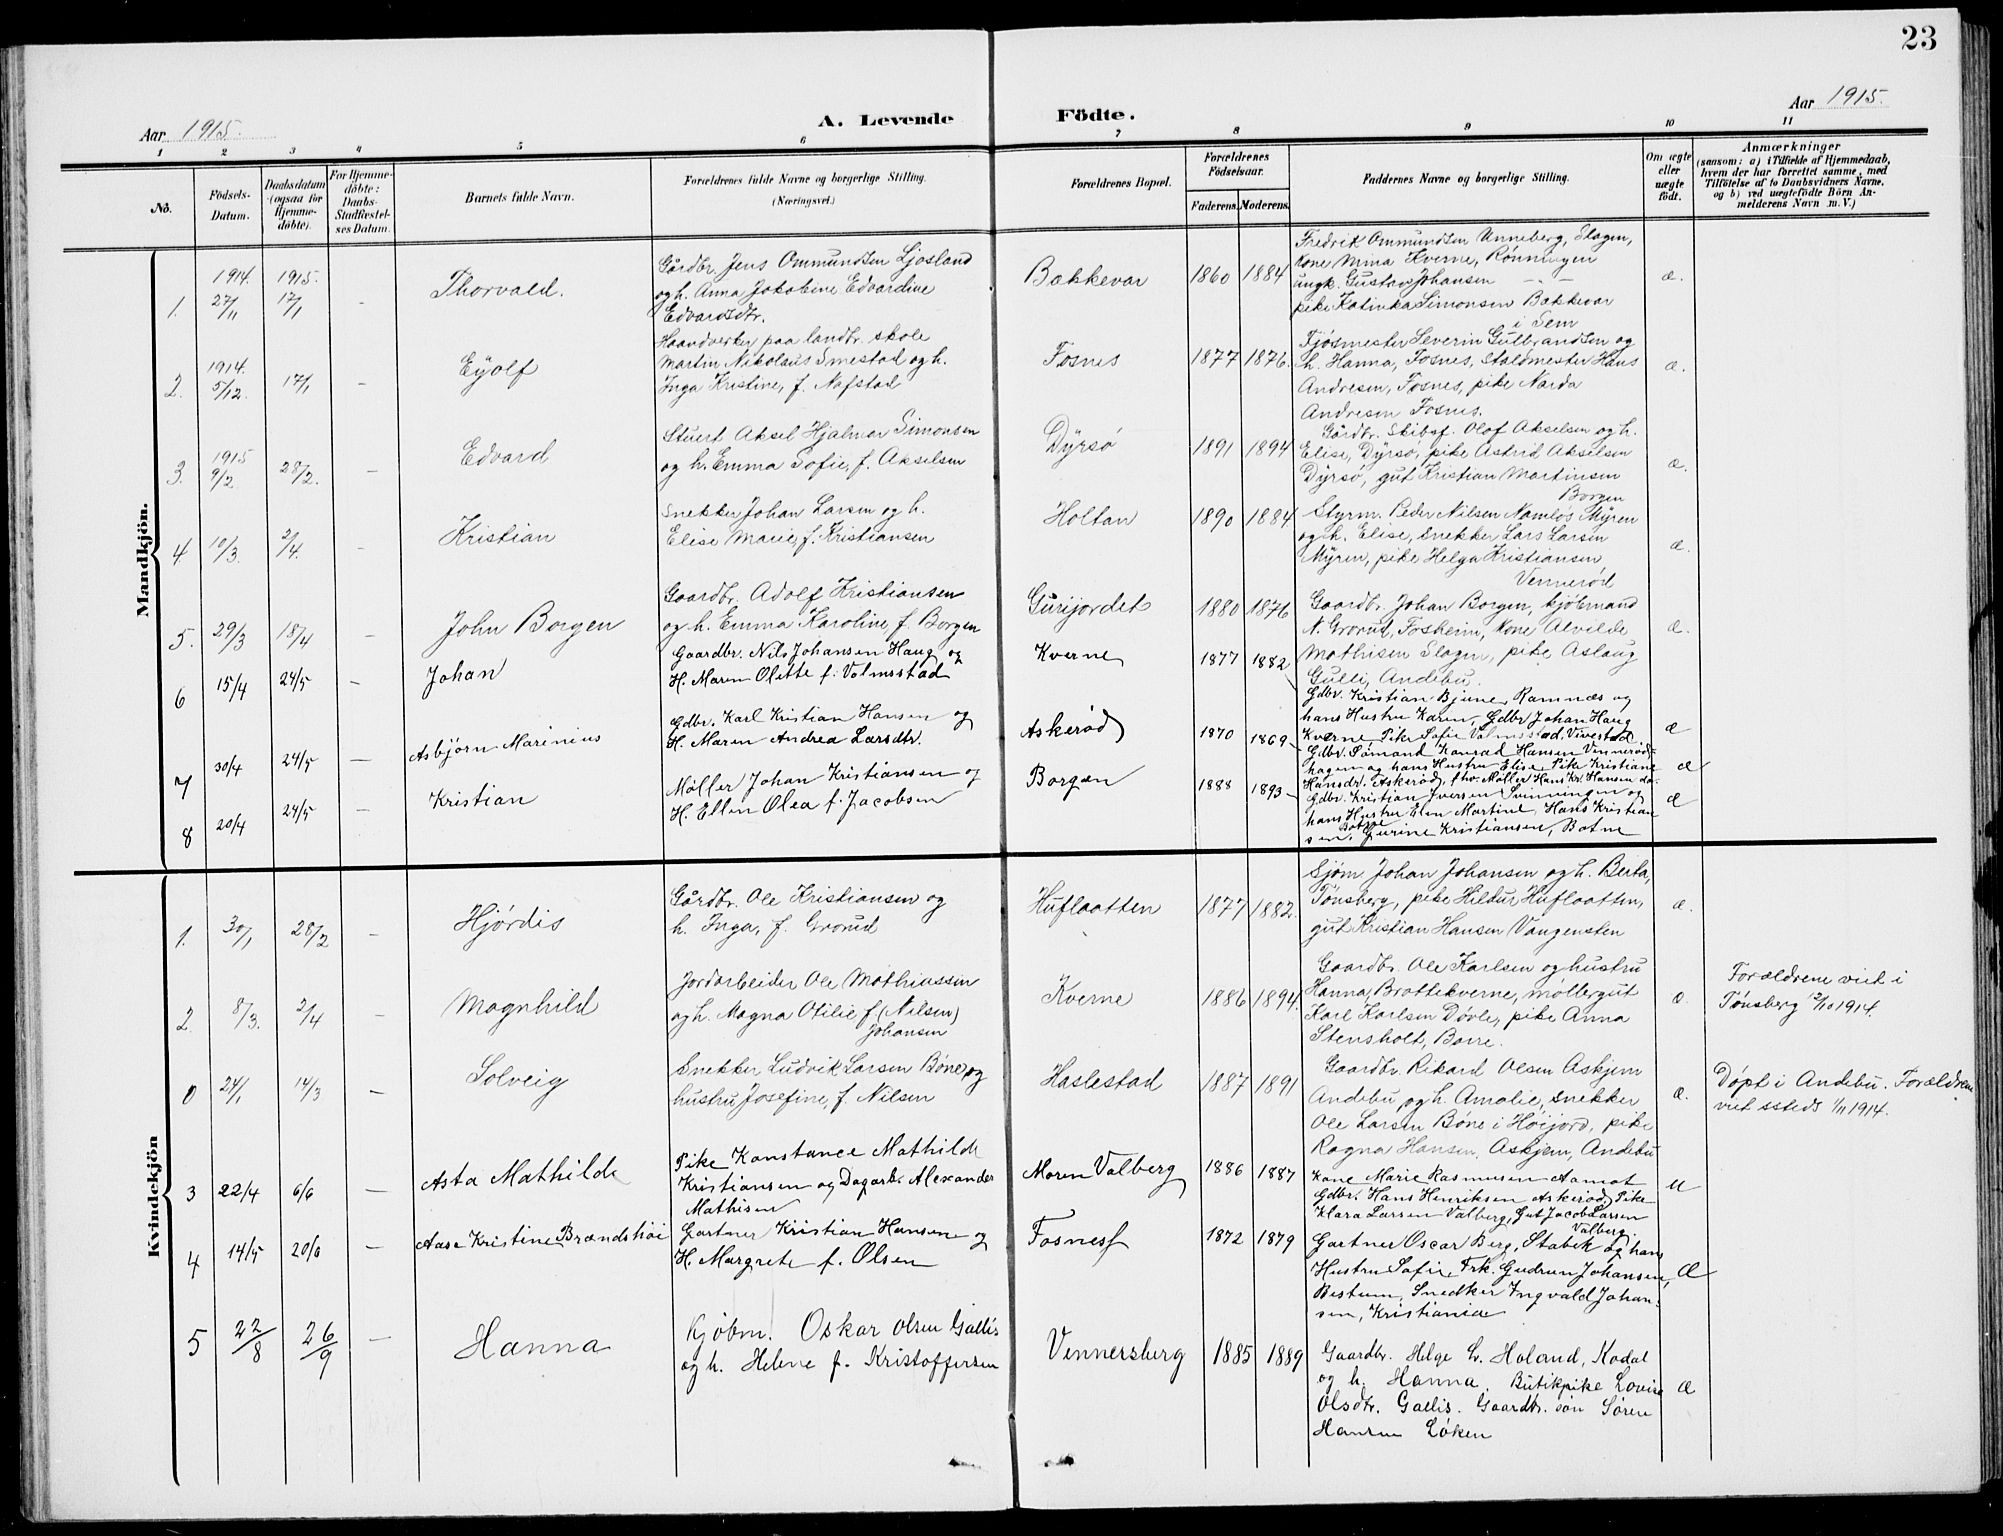 23
Aar 1915.
A. Levende Födte.
Aar 1915.
1 2 3 4 5 6 7 8 9 10 11
No.
Födsels-
Datum.
Daabsdatum
(ogsaa for
Hjemme-
döbte).
For Hjemme-
döbte:
Daabs-
Stadfæstel-
ses Datum.
Barnets fulde Navn.
Forældrenes fulde Navne og borgerlige Stilling.
(Næringsvei.)
Forældrenes Bopæl.
Forældrenes
Födselsaar.
Faderens. Moderens.
Faddernes Navne og borgerlige Stilling.
Om ægte
eller
uægte
födt.
Anmærkninger
(saasom: a) i Tilfælde af Hjemmedaab,
hvem der har forrettet samme, med
Tilföielse af to Daabsvidners Navne,
og b) ved uægtefödte Börn An-
melderens Navn m. V.)
Mandkjön.
1. 1914. 27/11 1915. 17/1 - Thorvald.
Gårdbr. Jens Ommundsen Ljosland
og h. Anna Jakobine Edvardine
Edvardsdtr.
Bakkevar 1860 1884
Fredrik Ommundsen Unneberg, Slagen,
kone Mina Kverne, Rønningen
ungk. Gustav Johansen — " —
pike Katinka Simonsen Bakkevar
i Sem
æ.
2. 1914. 5/12. 17/1 - Eyolf
Haandverker paa landbr. skole
Martin Nikolaus Smestad og h.
Inga Kristine, f. Nafstad
Fosnes 1877 1876.
Fjøsmester Severin Gulbrandsen og
h. Hanna, Fosnes, Staldmester Hans
Andresen, Fosnes, pike Narda
Andresen Fosnes.
æ.
3. 1915 9/2 28/2. - Edvard
Stuert Aksel Hjalmar Simonsen
og h. Emma Sofie, f. Akselsen
Dyrsø 1891 1894
Gårdbr. Skibsf. Olof Akselsen og h.
Elise, Dyrsø, pike Astrid Akselsen
Dyrsø, gut Kristian Martinsen
Borgen
æ.
4. 10/3. 2/4. - Kristian
Snekker Johan Larsen og h.
Elise Marie, f. Kristiansen
Holtan 1890 1884
Styrm. Peder Nilsen Namløs Myren
og h. Elise, snekker Lars Larsen
Myren, pike Helga Kristiansen
Vennerød
æ.
5. 29/3 18/4 - John Borgen
Gaardbr. Adolf Kristiansen
og h. Emma Karoline, f. Borgen
Gurijordet 1880 1876
Gaardbr. Johan Borgen, kjøbmand
N. Grorud, Fosheim, kone Alvilde
Mathisen Slagen, pike Aslaug
Gulli, Andebu.
æ.
6 15/4 24/5 — Johan
Gaardbr. Nils Johansen Haug og
H. Maren Olette f. Valmsstad
Kverne 1877 1882
Gdbr. Kristian Bjune, Ramnæs og
hans Hustru Karen, Gdbr Johan Haug
Kverne Pike Sofie Valmsstad, Vivestad
æ
7 30/4 24/5 — Asbjørn Marinius
Gdbr. Karl Kristian Hansen og
H. Maren Andrea Larsdtr.
Askerød 1870 1869
Gdbr. Sømand Konrad Hansen Vennerød-
hagen og hans Hustru Elise, Pike Kristiane
Hansdr. Askerød, fhv. Møller Hans Kr. Hansen do.
æ
8 20/4 24/5 — Kristian
Møller Johan Kristiansen og
H. Ellen Olea f. Jacobsen
Borgen 1888 1893
Gdbr. Kristian Iversen Svinningen og
hans Hustru Elen Martine, Hans Kristian
sen, Botne Kristiansen, Botne
æ
Kvindekjön
1. 30/1 28/2 — Hjørdis
Gårdbr. Ole Kristiansen og
h. Inga, f. Grorud
Huflaatten 1877 1882.
Sjøm Johan Johansen og h. Berta,
Tønsberg, pike Hildur Huflaatten,
gut Kristian Hansen Vaugensten
æ.
2. 8/3. 2/4 - Magnhild
Jordarbeider Ole Mathiassen
og h. Magna Otilie f (Nilsen)
Johansen
Kverne 1886 1894.
Gaardbr. Ole Karlsen og hustru
Hanna, Brattekverne, møllergut
Karl Karlsen Døvle, pike Anna
Stensholt, Borre.
Forældrene viet i
Tønsberg 2/10 1914.
0 24/1 14/3 — Solveig
Snekker Ludvik Larsen Bøne og
hustru Josefine, f. Nilsen
Haslestad 1887 1891
Gaardbr. Rikard Olsen Askjem
Andebu, og h. Amalie, snekker
Ole Larsen Bøne i Høijord, pike
Ragna Hansen, Askjem, Andebu
æ.
Døpt i Andebu. Forældrene
viet ssteds 1/11 1914.
3 22/4 6/6 — Asta Mathilde
Pike Konstance Mathilde
Kristiansen og Dagarb. Alexander
Mathisen
Moren Valberg 1886 1887
Kone Marie Rasmussen Aamot
Gdbr. Hans Henriksen Askerød, Pike
Klara Larsen Valberg, Gut Jacob Larsen
Valberg.
u
4 14/5 20/6 — Aase Kristine Brændshöi
Gartner Kristian Hansen og
H. Margrete f. Olsen
Fosnes 1872 1879
Gartner Oscar Berg, Stabek og hans
Hustru Sofie, Frk. Gudrun Johansen,
Bestum, Snedker Ingvald Johan-
sen, Kristiania
Æ
5 22/8 26/9 — Hanna
Kjøbm. Oskar Olsen Gallis
og h. Helene f. Kristoffersen
Vennersberg 1885 1889
Gaardbr. Helge L. Holand, Kodal
og h. Hanna. Butikpike Lovise
Olsdtr. Gallis. Gaardbr. søn Søren
Hansen Løken
Æ